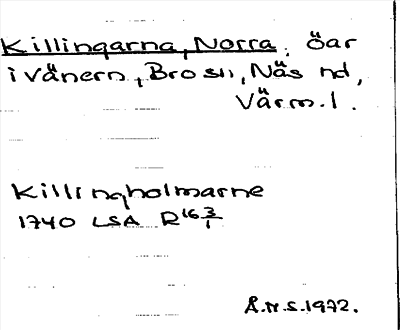 Killingarna, Norra, öar
i Vänern, Bro sn, Näs hd,
Värm. l.
Killingholmarne
1740 LSA R16 3/1
Å.N.S. 1972.